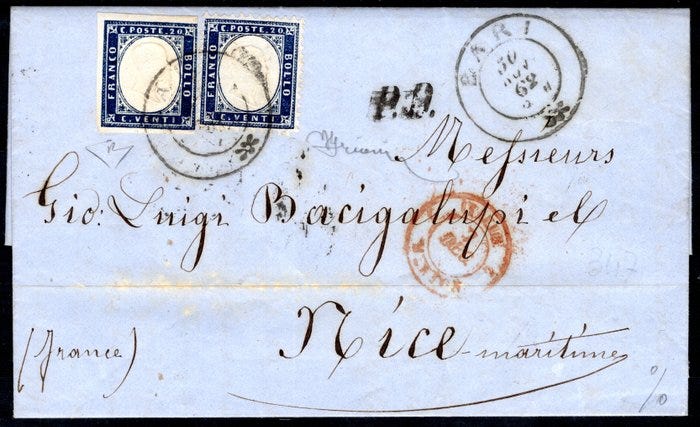 C. POSTE. 20
FRANCO
BOLLO
C. VENTI
C. POSTE. 20
FRANCO
BOLLO
C. VENTI
P.D.
BARI
30
62
Messieurs
Gio: Luigi Bacigalupi et
Nice-maritime
(France)
347